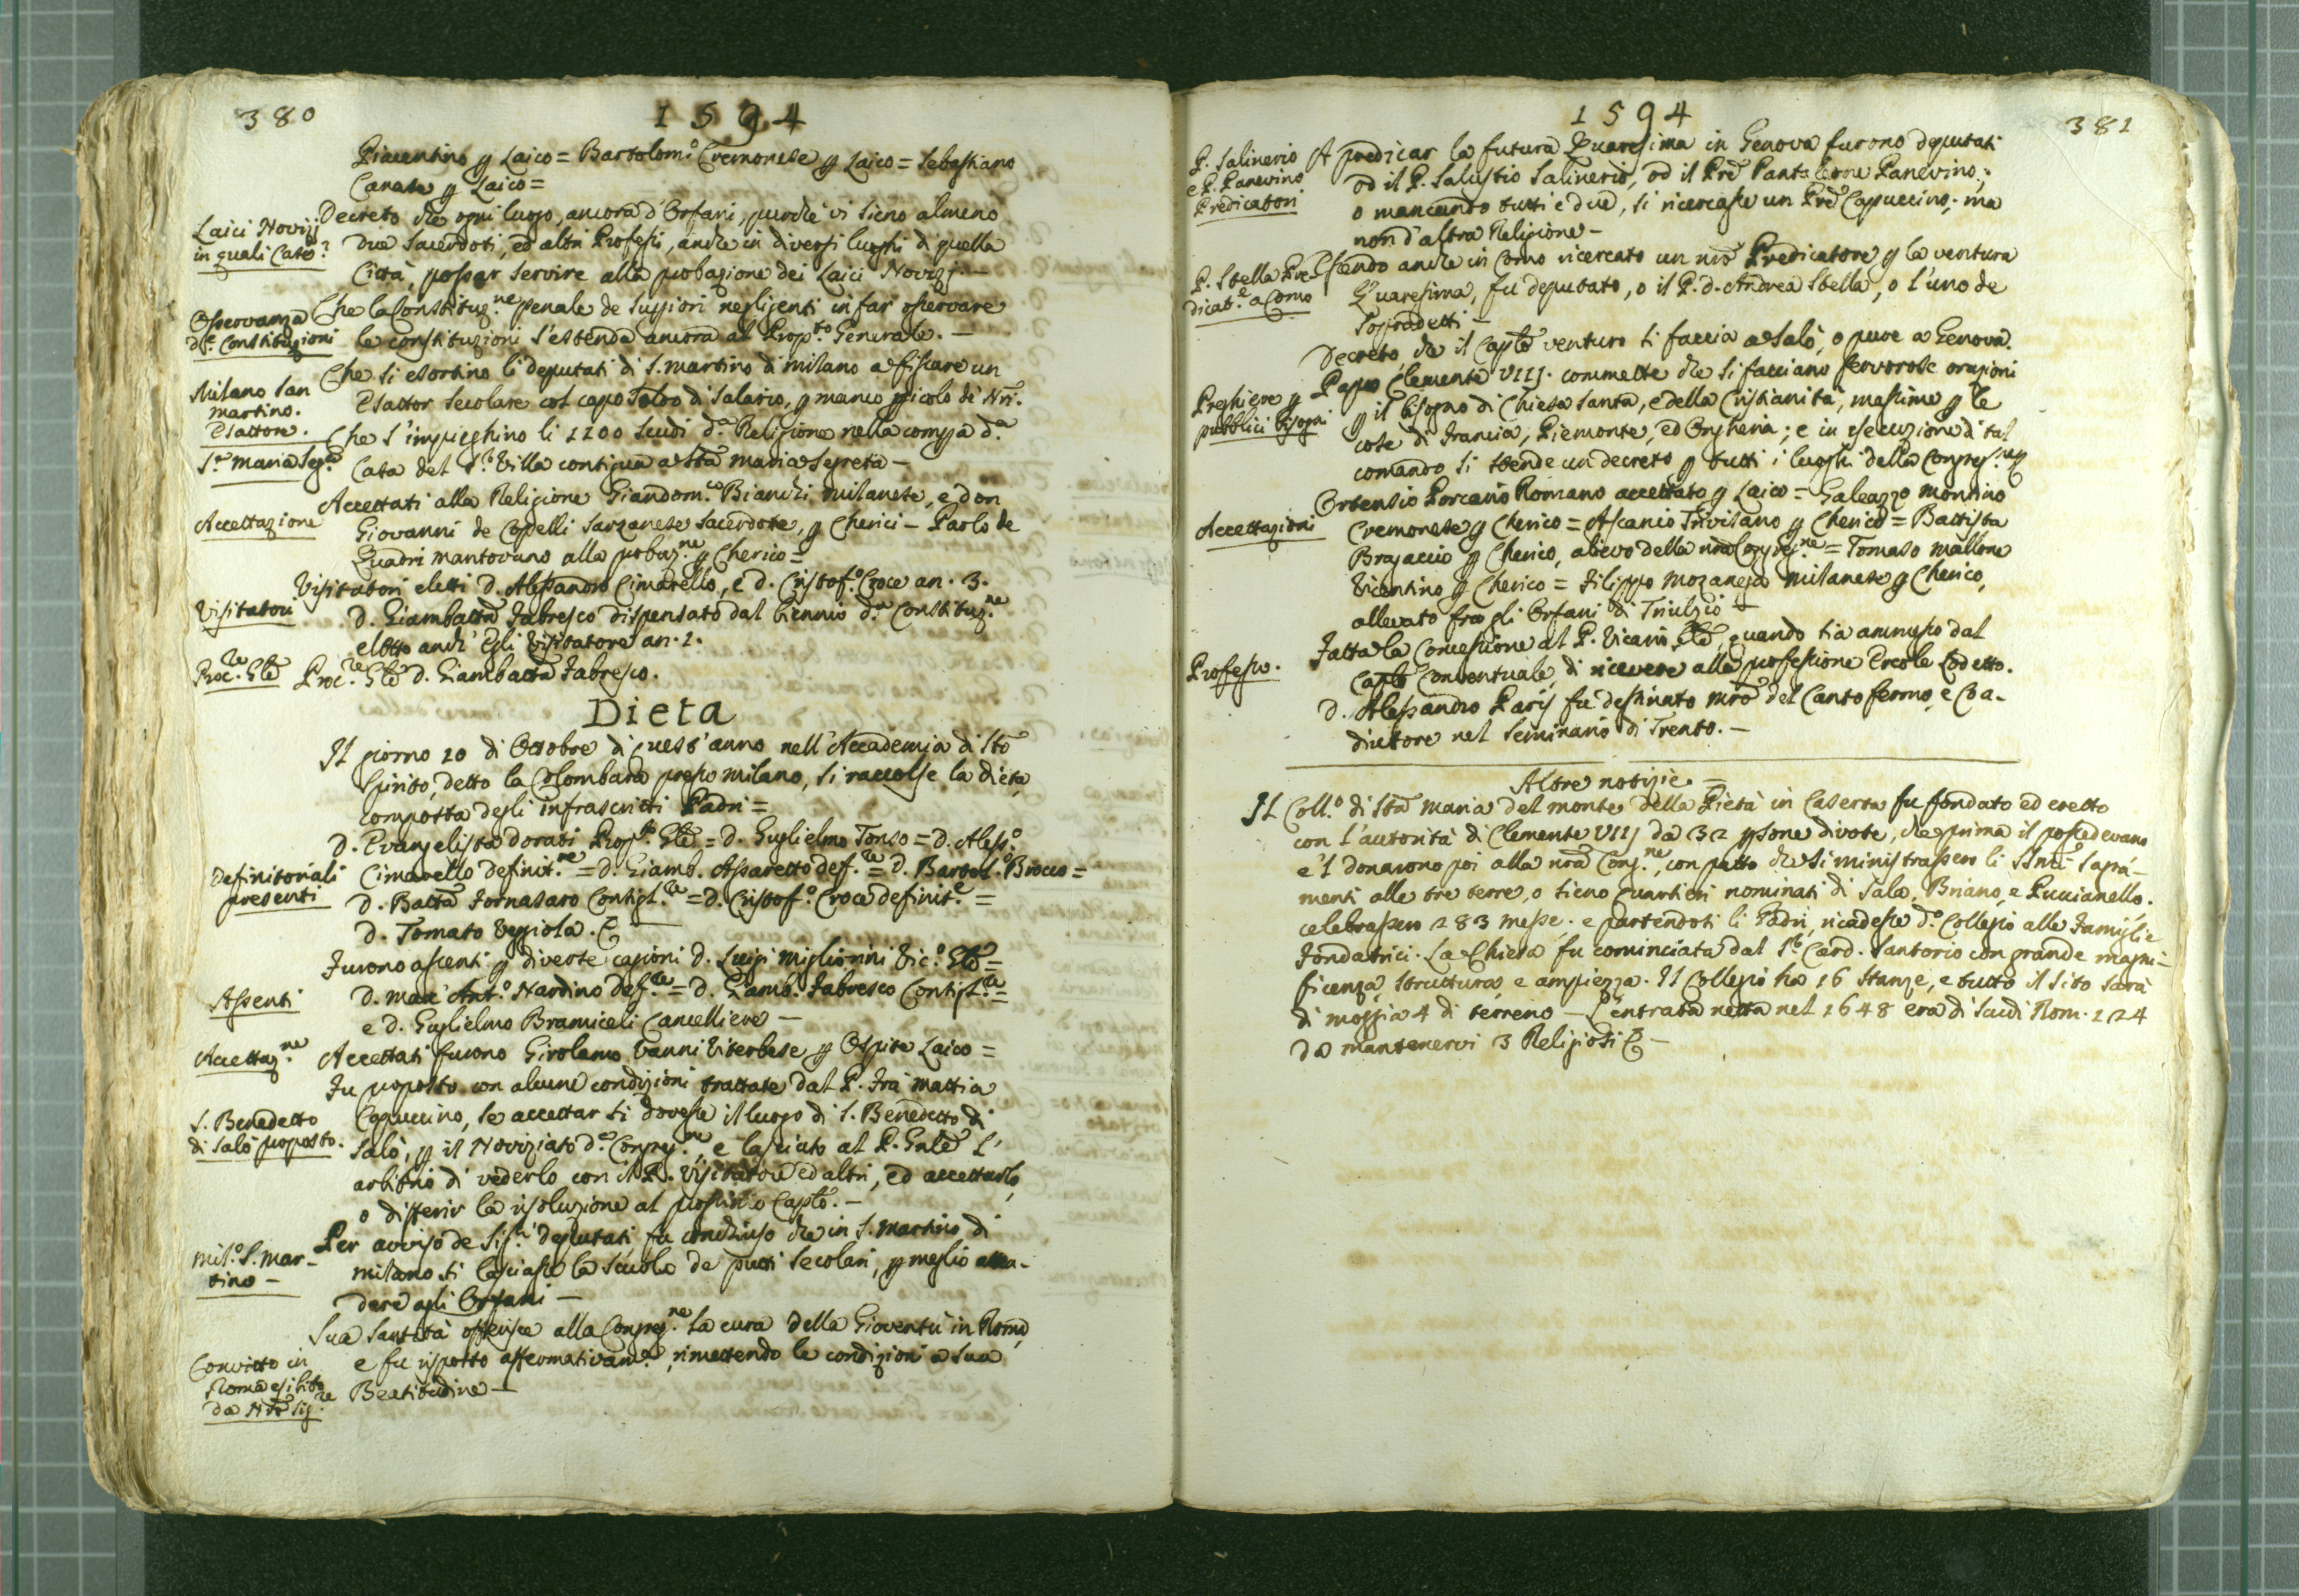 380
1594
Piacentino p Laico = Bartolom.º Cremonese p Laico = Sebastiano
Canata p Laico =
Laici Novizj
in quali Case?
Decreto che ogni luogo, ancora d'Orfani, purchè vi sieno almeno
due Sacerdoti, ed altri Professi, anche in diversi luoghi di quella
Città, possar servire alla probazione dei Laici Novizj. —
Osservanza
d.e Constituzioni
Che la Constituz.ne penale de Supiori negligenti in far osservare
le constituzioni s'estenda ancora al Prop.to Generale. —
Milano San
Martino.
Esattore.
Che si esortino li deputati di S. Martino di Milano a fissare un
Esattor secolare col capo soldo di salario, p manco picolo de Nri.
S.ta Maria Seg.ta
Che s'impieghino li 1100 scudi d.a Religione nella compa d.a
Casa del S.r Villa contigua a Sta Maria Segreta —
Accettazione
Accettati alla Religione Giandom.co Bianchi Milanese, e don
Giovanni de Copelli Sarzanese Sacerdote, p Cherici — Paolo de
Quadri Mantovano alla probaz.ne p Cherico =
Visitatori
Visitatori eletti D. Alessandro Cimarello, e D. Cristof.º Croce an. 3.
D. Giambatta Fabresco dispensato dal biennio d.a Constituz.ne
eletto anch'Egli Visitatore an. 1.
Proc.re Gle
Proc.re Gle D. Giambatta Fabresco.
Dieta
Il giorno 10 di Ottobre di quest'anno nell'Accademia di Sto
Spirito, detto la Colombara presso Milano, si raccolse la dieta,
composta degli infrascritti Padri =
Definitoriali
presenti
D. Evangelista Dorati Prop.to Gle = D. Guglielmo Tonso = D. Aless.º
Cimarello Definit.re = D. Giamb. Assaretto Deff.re = D. Bartol.º Brocco =
D. Batta Fornasaro Consigl.re = D. Cristof.º Croce definit.e =
D. Tomaso Veggiola. &
Assenti
Furono assenti p diverse cagioni D. Luigi Migliorini Vic.º Gle =
D. Marc'Ant.º Nardino Deff.re = D. Giamb.a Fabresco Consigl.re =
e D. Guglielmo Bramiceli Cancelliere —
Accettaz.ne
Accettati furono Girolamo Vanni Viterbese p Ospite Laico =
S. Benedetto
di Salò proposto.
Fu proposto con alcune condizioni trattate dal P. Frà Mattia
Capuccino, se accettar si dovesse il luogo di S. Benedetto di
Salò, p il Noviziato d.a Congreg.ne, e lasciato al P. Gnle l'
arbitrio di vederlo con il P. Visitatore ed altri, ed accettarlo,
o differir la risoluzione al prossimo Caplo. —
Mil.º S. Mar-
tino —
Per avviso de Sig.ri deputati fu conchiuso che in S. Martino di
Milano si lasciasse la scuola de putti secolari, p meglio atten-
dere agli Orfani —
Convitto in
Roma esibito
da Nro Sig.re
Sua Santità offerisce alla Congreg.ne la cura della Gioventù in Roma,
e fu risposto affermativam.e, rimettendo le condizioni a Sua
Beatitudine —
1594
381
P. Salinerio
e P. Panevino
Predicatori
A predicar la futura Quaresima in Genova furono deputati
od il P. Salustio Salinerio, od il Pre Pantaleone Panevino;
o mancando tutti e due, si ricercasse un Pre Capuccino; ma
non d'altra Religione —
P. Stella Pre-
dicat.e a Como
Essendo anche in Como ricercato un nro Predicatore p la ventura
Quaresima, fu deputato, o il P. D. Andrea Stella, o l'uno de
sopradetti —
Decreto che il Caplo venturo si faccia a Salò, o pure a Genova.
Preghiere p
pubblici bisogni
Papa Clemente VIIJ. commette che si facciano fervorose orazioni
p il bisogno di Chiesa Santa, e della Cristianità, massime p le
cose di Francia, Piemonte, ed Ongheria; e in esecuzione di tal
comando si stende un decreto p tutti i luoghi della Congreg.ne
Accettazioni
Ortensio Porcario Romano accettato p Laico = Galeazzo Montino
Cremonese p Cherico = Ascanio Trivisano p Cherico = Battista
Bragaccio p Cherico, alievo della nra Congreg.ne = Tomaso Mallone
Vicentino p Cherico = Filippo Mozanega Milanese p Cherico,
allevato fra gli Orfani di Triulzio —
Professo.
Fatta la concessione al P. Vicario Gle, quando sia ammesso dal
Caplo Conventuale, di ricevere alla professione Ercole Codetto.
D. Alessandro Parij fu destinato Mro del Canto fermo, e Coa-
diutore nel Seminario di Trento. —
Altre notizie =
Il Coll.º di Sta Maria del Monte della Pietà in Caserta fu fondato ed eretto
con l'autorità di Clemente VIIJ da 32 psone divote, che prima il possedevano
e'l donarono poi alla nra Cong.ne, con patto che si ministrassero li SSmi Sagra-
menti alle tre terre, o sieno quartieri nominati di Sala, Briano, e Puccianello.
celebrassero 283 messe; e partendosi li Padri, ricadesse d.º Collegio alle Famiglie
Fondatrici. La Chiesa fu cominciata dal S.r Card. Santorio con grande magni-
ficenza, struttura, e ampiezza. Il Collegio ha 16 stanze, e tutto il sito sarà
di moggia 4 di terreno — L'entrata netta nel 1648 era di scudi Rom. 124
da mantenervi 3 Religiosi & —